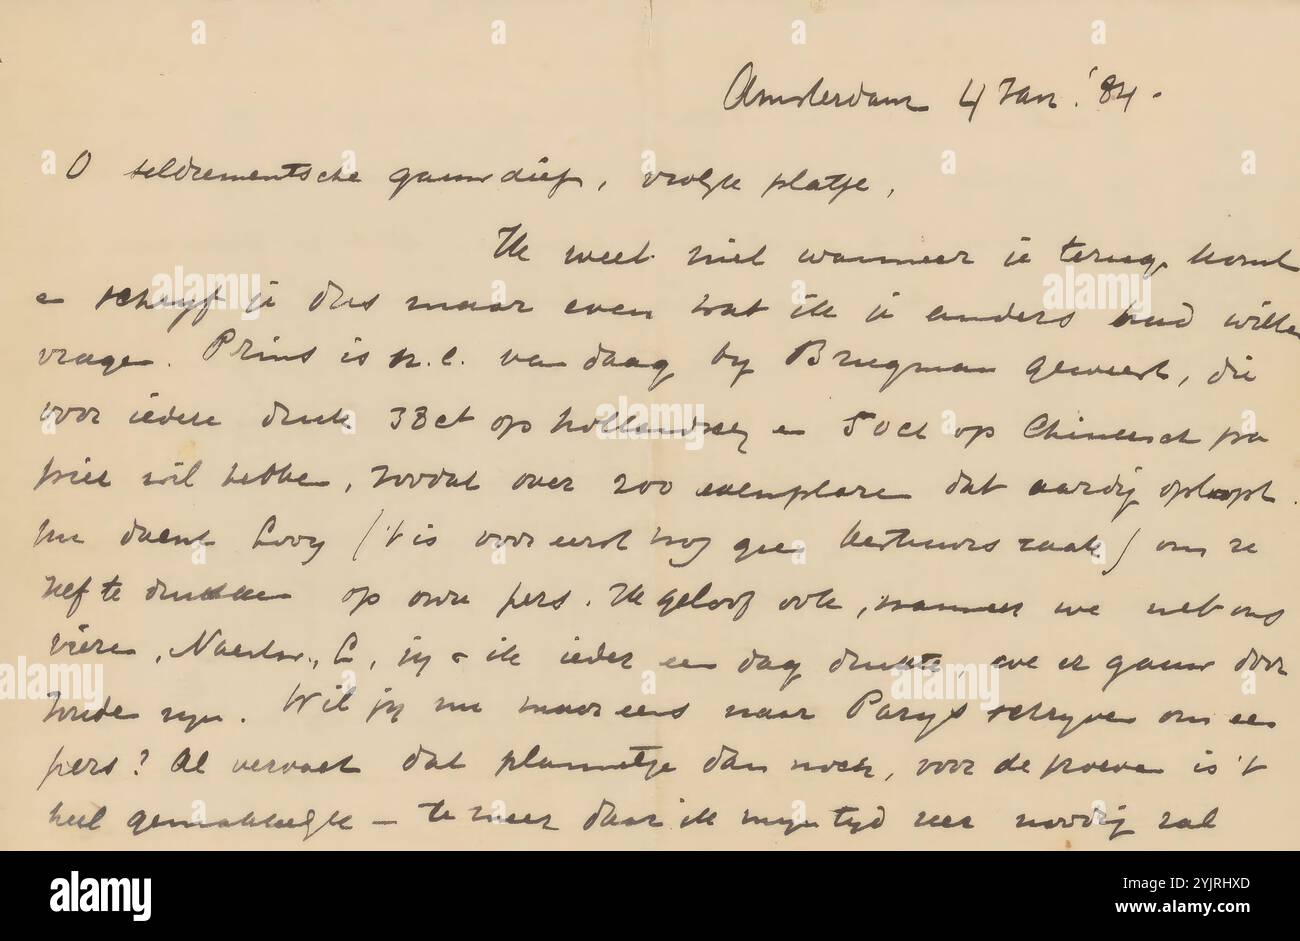 Amsterdam 4 Jan. '84.
O seldrementsche gauwdief, vrolyke platje,
Ik weet niet wanneer je terug komt
en schryf je dus maar even wat ik je anders had willen
vragen. Prins is n.l. vandaag by Bruegman geweest, die
voor iedere druk 38ct op hollandsch en 50ct op Chineesch pa
pier wil hebben, zoodat over 200 exemplaren dat aardig oploopt.
nu daent Looy ('t is vooreerst nog geen bestuurszaak) om ze
zelf te drukken op onze pers. Ik geloof ook, wanneer we met ons
vieren, , L, jy & ik ieder een dag drukte, we er gauw door
zouden zyn. Wil jy nu maar eens naar Parys schryven om een
pers? Al vervalt dat plannetje dan noch, voor de proeven is 't
heel gemakkelyk – te meer daar ik myn tyd zeer noodig zal
alamy
Image ID: 2YJRHXD
www.alamy.com